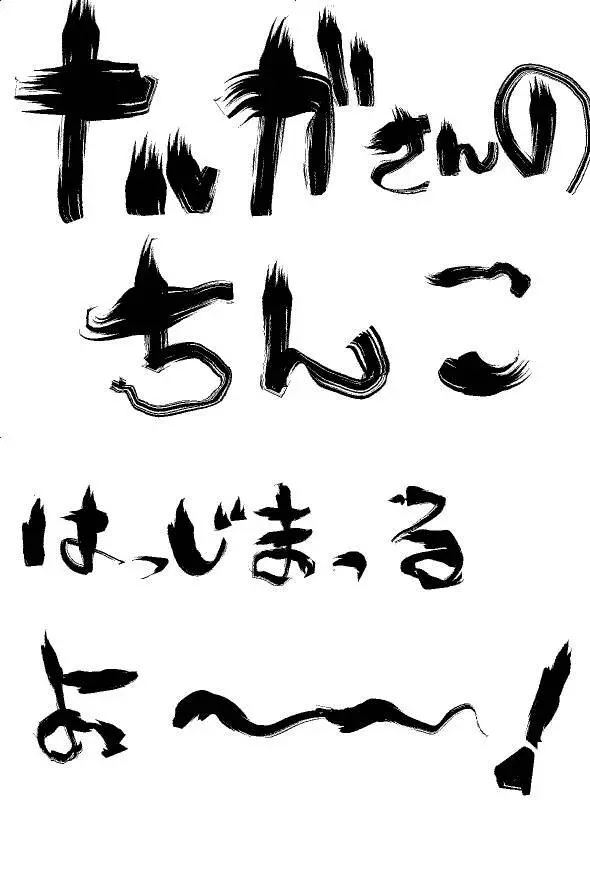 ナルガさんの
ちんこ
はっじまっる
よ〜〜！